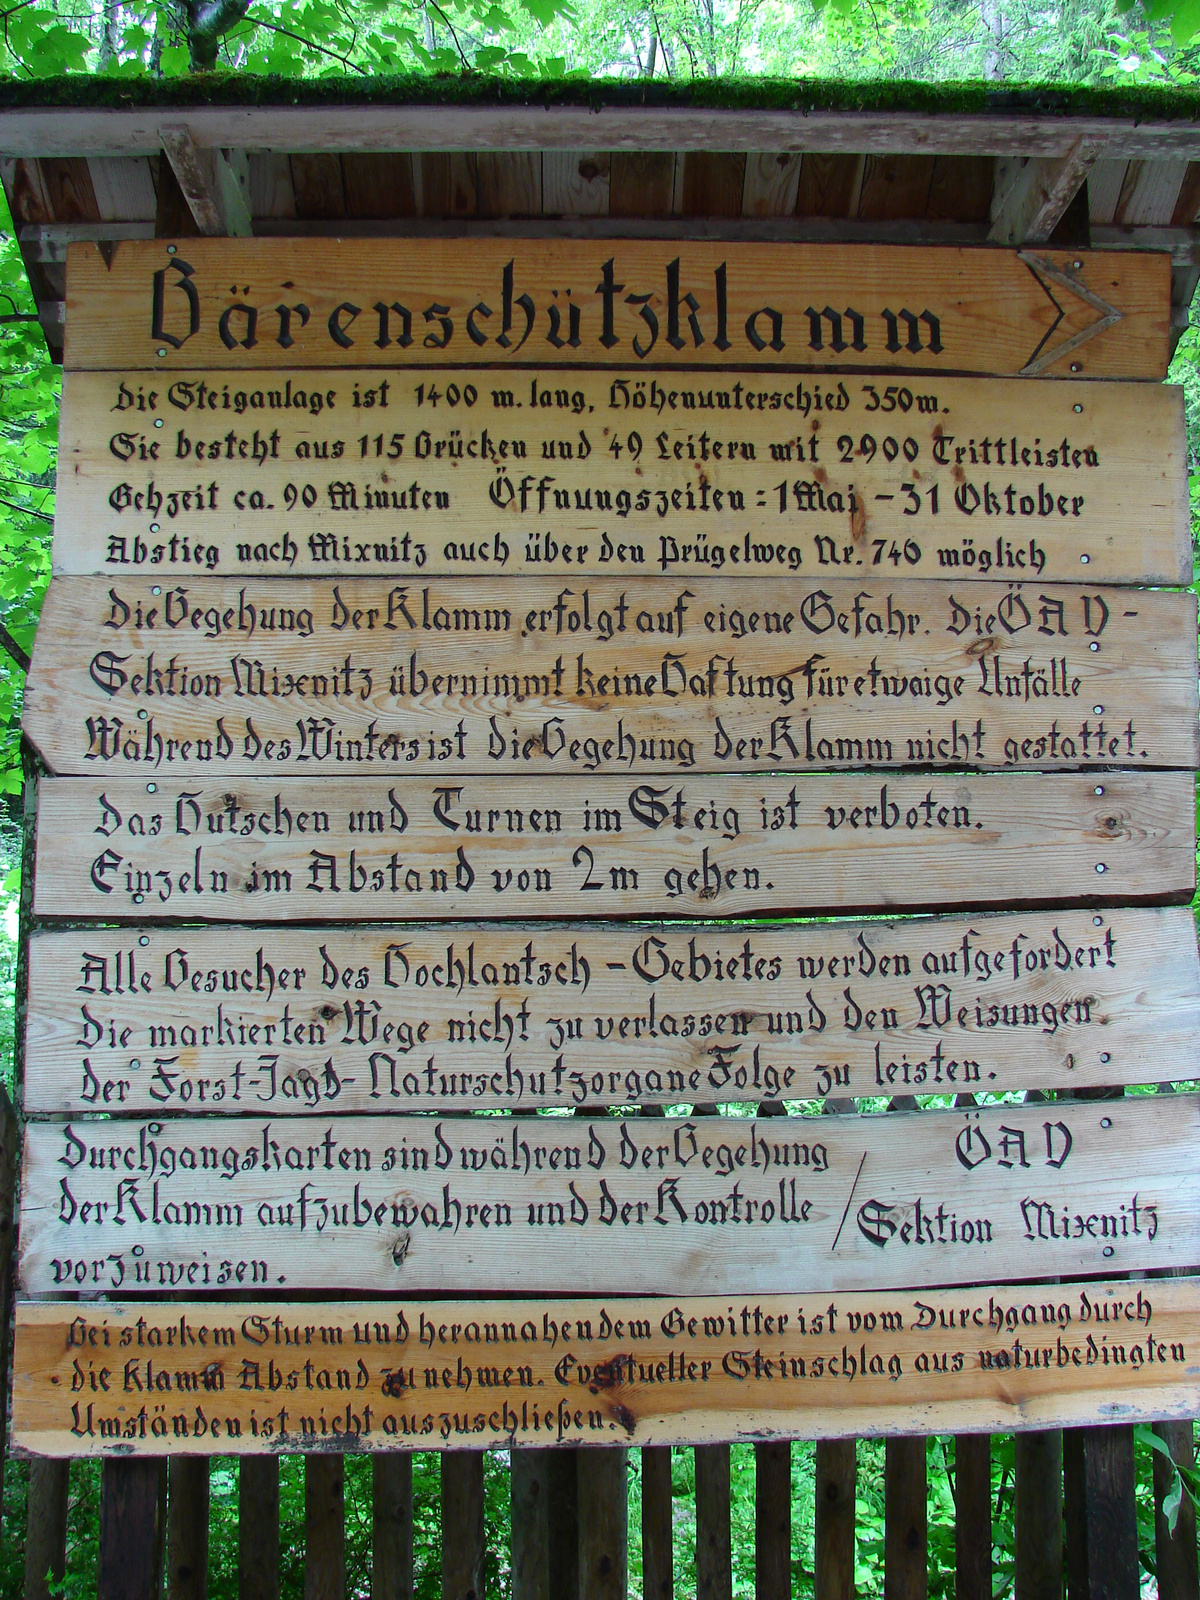 Bärenschützklamm
Die Steiganlage ist 1400 m. lang, Höhenunterschied 350m.
Sie besteht aus 115 Brücken und 49 Leitern mit 2900 Trittleisten
Gehzeit ca. 90 Minuten Öffnungszeiten: 1 Mai - 31 Oktober
Abstieg nach Mixnitz auch über den Prügelweg Nr. 746 möglich
Die Begehung der Klamm erfolgt auf eigene Gefahr. Die ÖAV-
Sektion Mixnitz übernimmt keine Haftung für etwaige Unfälle
Während des Winters ist die Begehung der Klamm nicht gestattet.
Das Hutschen und Turnen im Steig ist verboten.
Einzeln im Abstand von 2m gehen.
Alle Besucher des Hochlantsch-Gebietes werden aufgefordert
die markierten Wege nicht zu verlassen und den Weisungen
der Forst-Jagd-Naturschutzorgane Folge zu leisten.
Durchgangskarten sind während der Begehung
der Klamm aufzubewahren und der Kontrolle
vorzuweisen.
/ ÖAV
Sektion Mixnitz
Bei starkem Sturm und herannahendem Gewitter ist vom Durchgang durch
die Klamm Abstand zu nehmen. Eventueller Steinschlag aus naturbedingten
Umständen ist nicht auszuschließen.